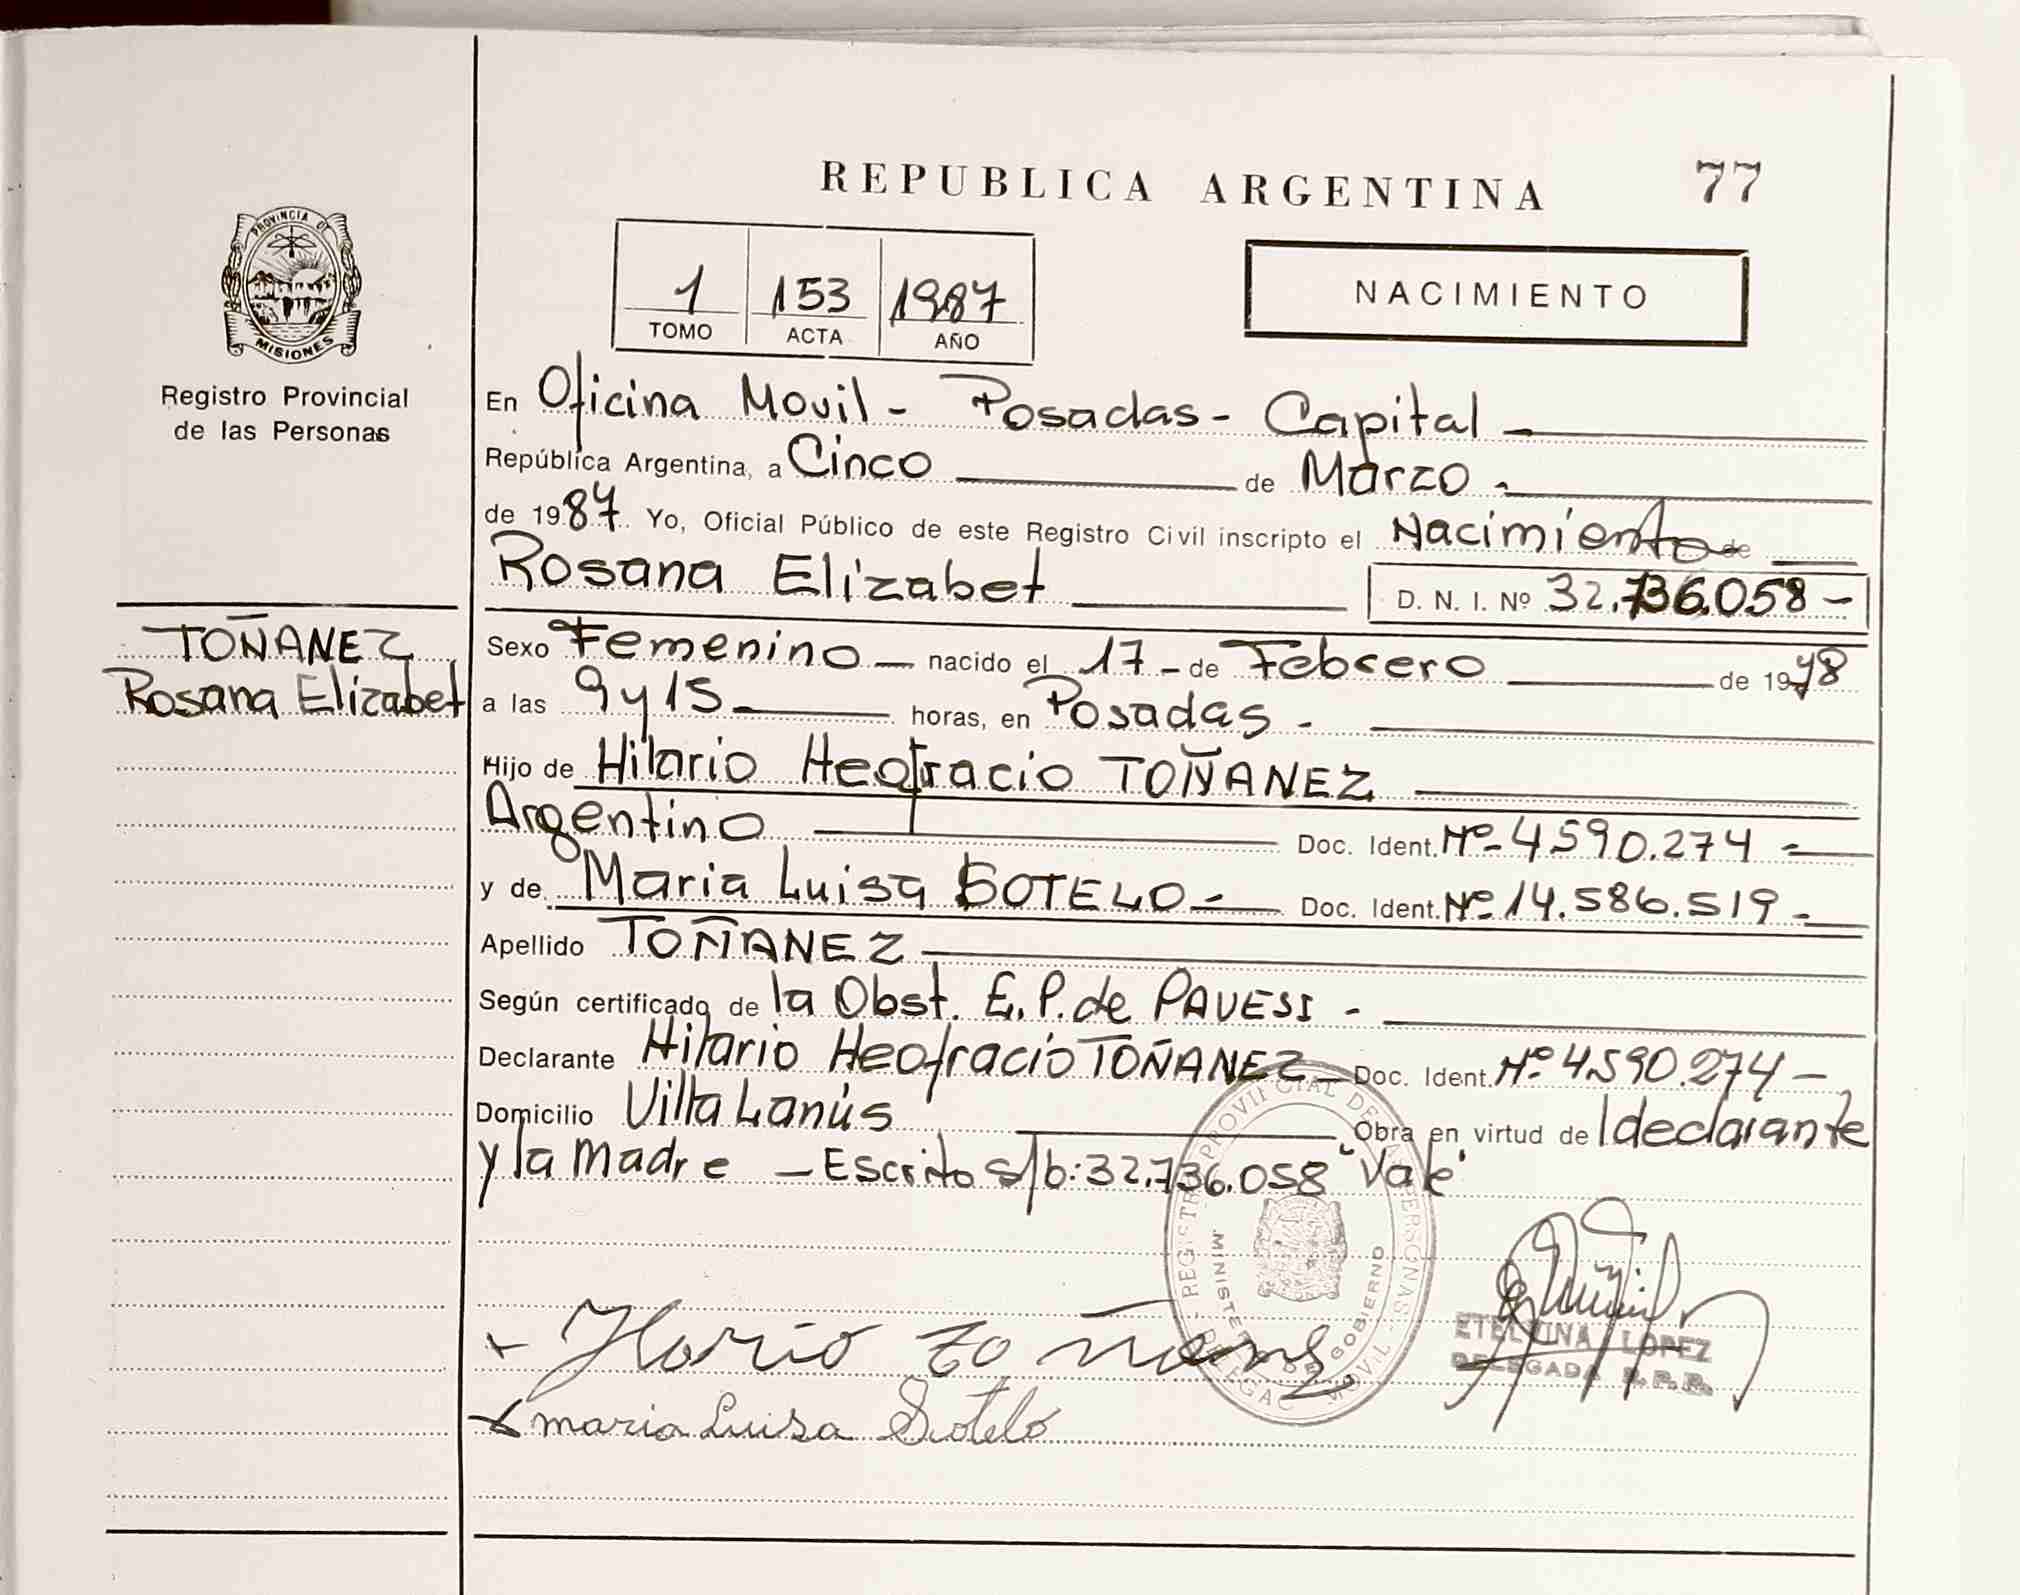 REPUBLICA ARGENTINA 77
PROVINCIA DE
MISIONES
Registro Provincial
de las Personas
1 153 1987
TOMO ACTA AÑO
NACIMIENTO
En Oficina Movil - Posadas - Capital -
República Argentina, a Cinco de Marzo -
de 1987. Yo, Oficial Público de este Registro Civil inscripto el Nacimiento de
Rosana Elizabet D. N. I. Nº 32.736.058 -
TOÑANEZ
Rosana Elizabet
Sexo Femenino - nacido el 17 - de Febrero de 1978
a las 9 y 15 - horas, en Posadas -
Hijo de Hilario Heofracio TOÑANEZ
Argentino Doc. Ident. Nº 4590.274 -
y de Maria Luisa SOTELO - Doc. Ident. Nº 14.586.519 -
Apellido TOÑANEZ
Según certificado de la Obst. E. P. de PAVESI -
Declarante Hilario Heofracio TOÑANEZ - Doc. Ident. Nº 4590.274 -
Domicilio Villa Lanús Obra en virtud de l declarante
y la Madre - Escrito s/b: 32.736.058 "Vale"
REGISTRO PROVINCIAL DE LAS PERSONAS
MINISTERIO DE GOBIERNO
MOVIL
maria Luisa Sotelo
ETELVINA LOPEZ
DELEGADA R. P. P.